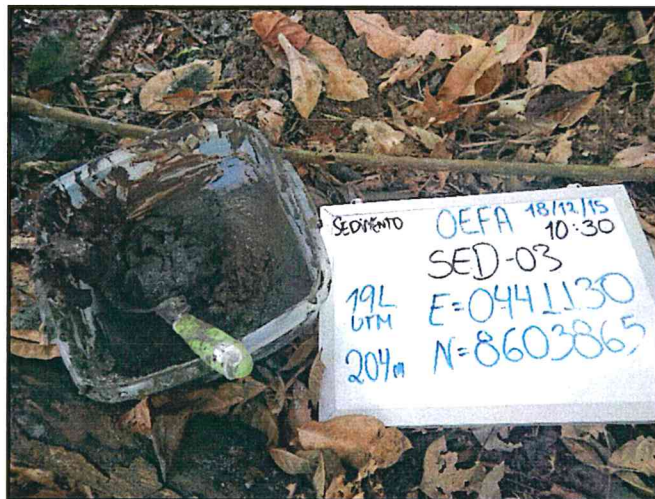 SEDIMENTO OEFA 18/12/15
10:30
SED-03
19L E=0441130
UTM
204m N=8603865